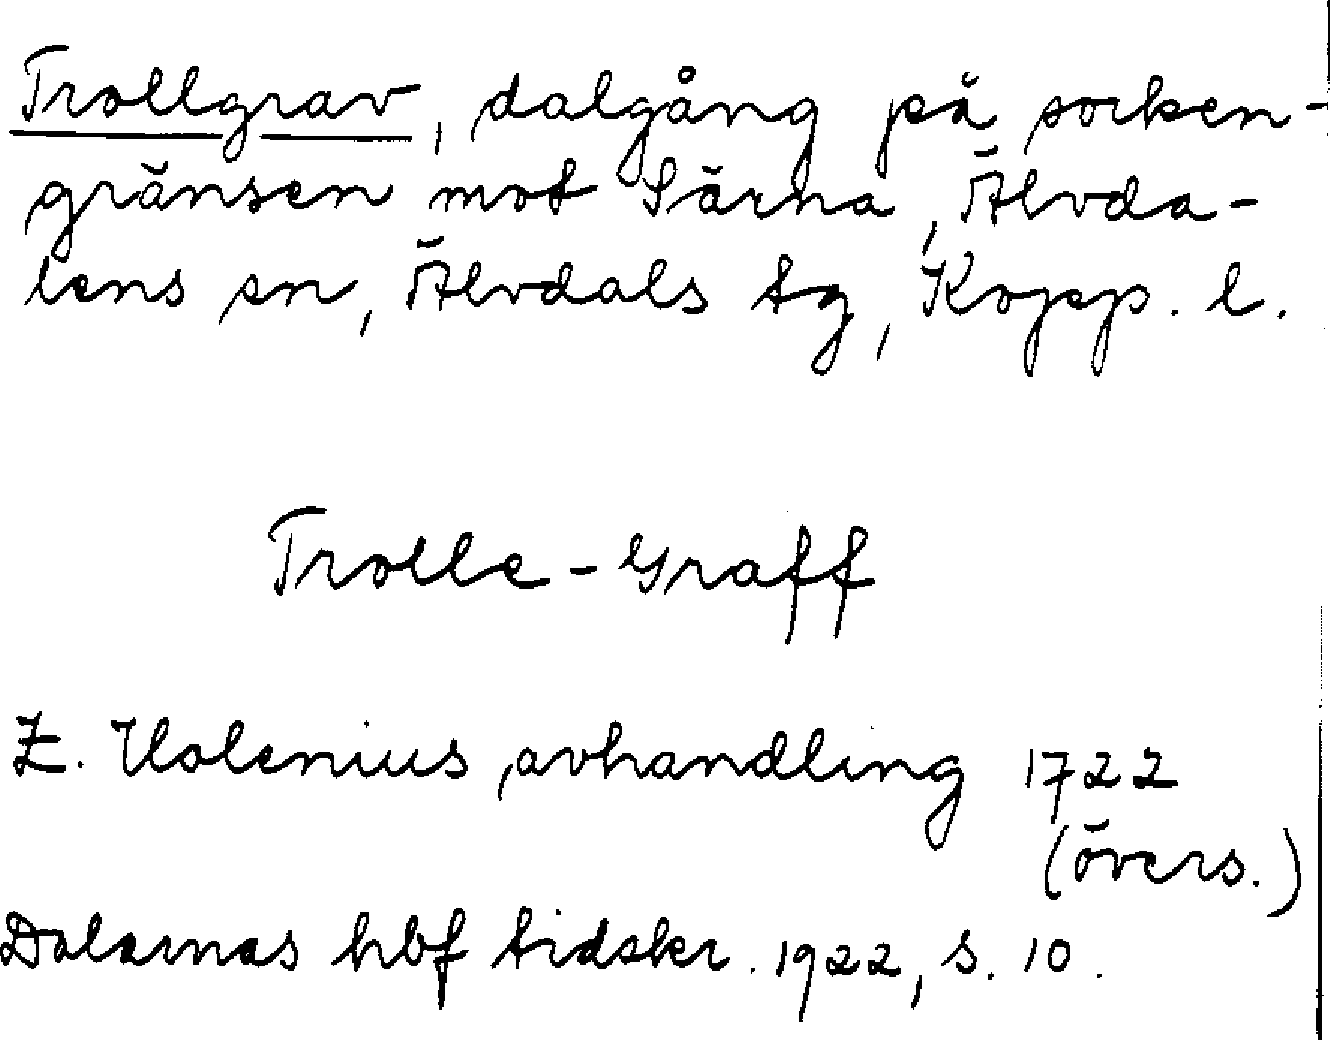 Trollgrav, dalgång på socken-
gränsen mot Särna, Älvda-
lens sn, Älvdals tg, Kopp. l.
Trolle-Graff
Z. Holenius, avhandling 1722
(övers.)
Dalarnas hbf tidskr. 1922, s. 10.